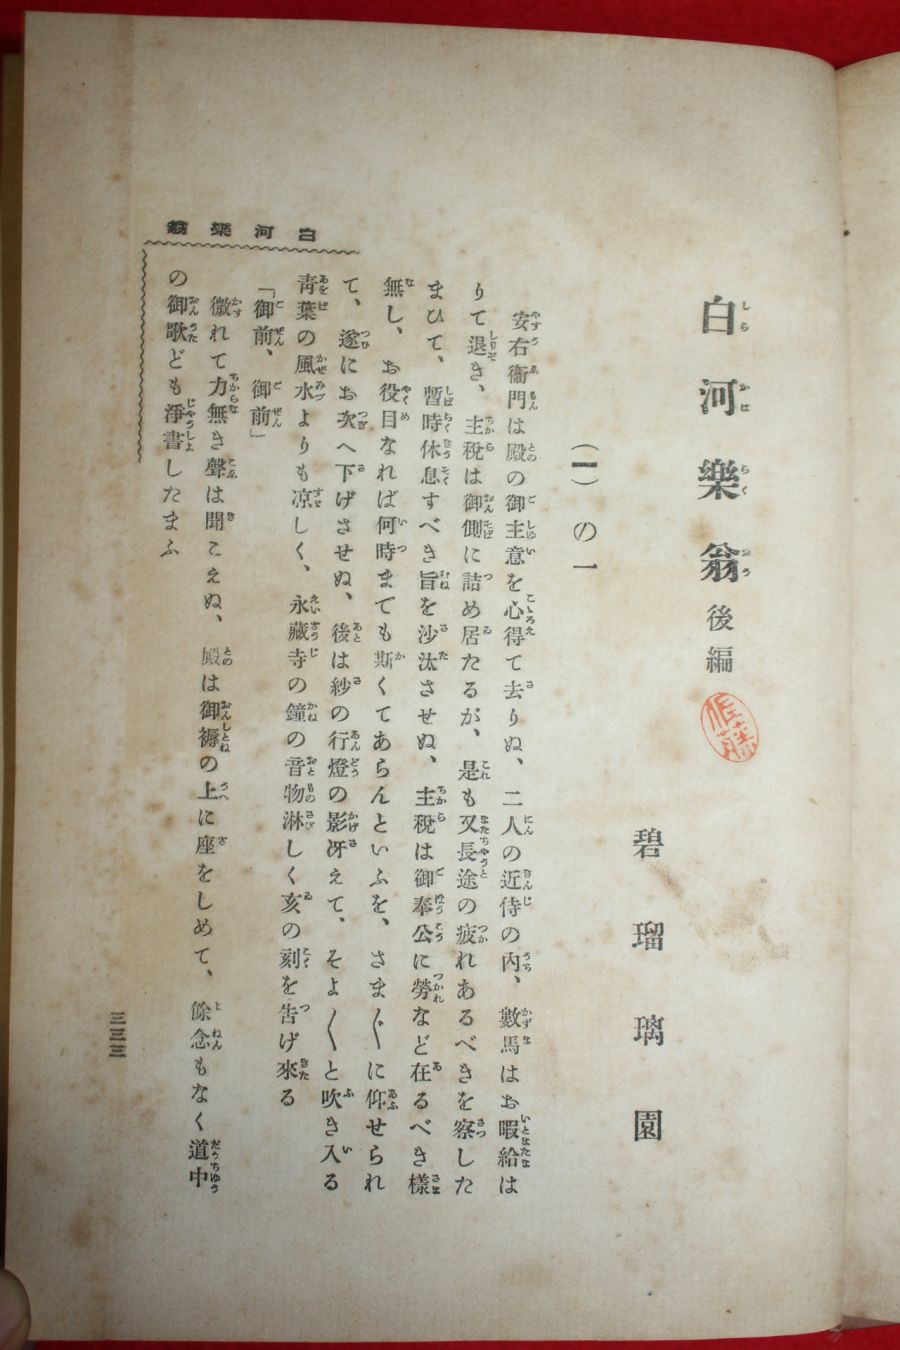 白河樂翁 後編
碧瑠璃園
(一)の一
安右衞門は殿の御主意を心得て去りぬ、二人の近侍の內、數馬はお暇給は
りて退き、主税は御側に詰め居たるが、是も又長途の疲れあるべきを察した
まひて、暫時休息すべき旨を沙汰させぬ、主税は御奉公に勞など在るべき樣
無し、お役目なれば何時までも斯くてあらんといふを、さま〴〵に仰せられ
て、遂にお次へ下げさせぬ、後は紗の行燈の影冴えて、そよ〱と吹き入る
靑葉の風水よりも凉しく、永藏寺の鐘の音物淋しく亥の刻を吿げ來る
「御前、御前」
微れて力無き聲は聞こえぬ、殿は御褥の上に座をしめて、餘念もなく道中
の御歌ども淨書したまふ
白河樂翁
三三三